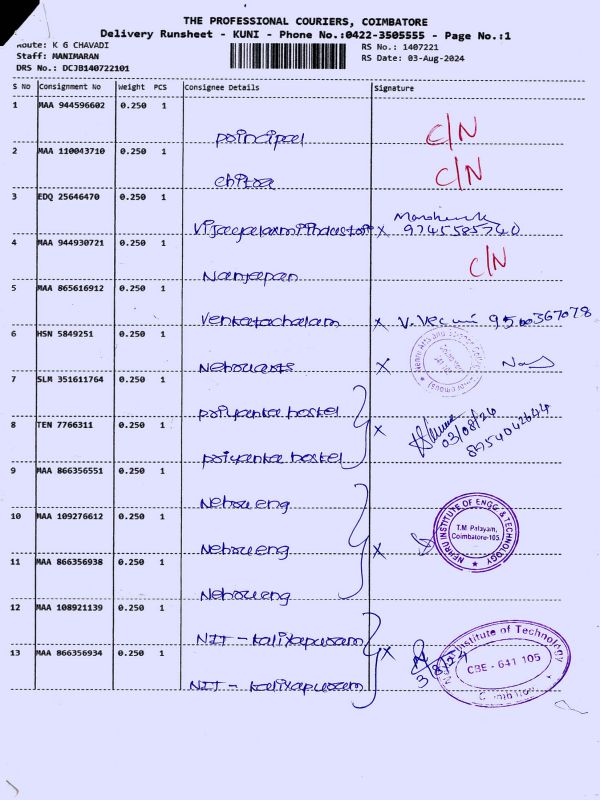 THE PROFESSIONAL COURIERS, COIMBATORE
Delivery Runsheet - KUNI - Phone No.:0422-3505555 - Page No.:1
Route: K G CHAVADI RS No.: 1407221
Staff: MANIMARAN RS Date: 03-Aug-2024
DRS No.: DCJB140722101
S No Consignment No Weight PCS Consignee Details Signature
1 MAA 944596602 0.250 1
principal C/N
2 MAA 110043710 0.250 1
chitra C/N
3 EDQ 25646470 0.250 1
x 9745585740
4 MAA 944930721 0.250 1
Nanjapan C/N
5 MAA 865616912 0.250 1
Venkatachalam x V. 9500367078
6 HSN 5849251 0.250 1
Nehru arts x
7 SLM 351611764 0.250 1
priyanka hostel
8 TEN 7766311 0.250 1
x 03/08/24
8754042644
priyanka hostel
9 MAA 866356551 0.250 1
Nehru eng
10 MAA 109276612 0.250 1
NEHRU INSTITUTE OF ENGG & TECHNOLOGY
T.M. Palayam,
Coimbatore-105.
Nehru eng x
11 MAA 866356938 0.250 1
Nehru eng
12 MAA 108921139 0.250 1
NIT - kaliyapuram
13 MAA 866356934 0.250 1
x 3/8/24
Institute of Technology
CBE - 641 105
NIT - kaliyapuram